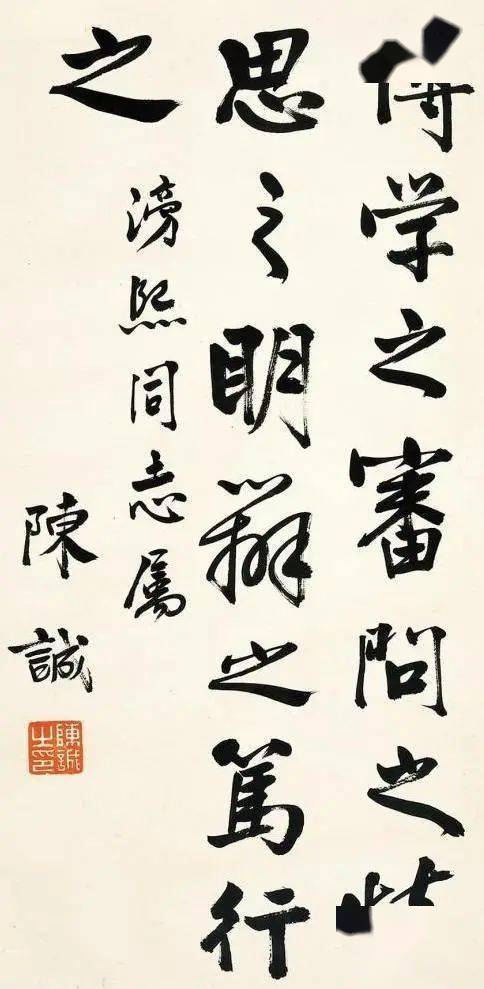 学之審問之
思之明辨之篤行
之
滂熙同志属
陳誠
陳誠之印